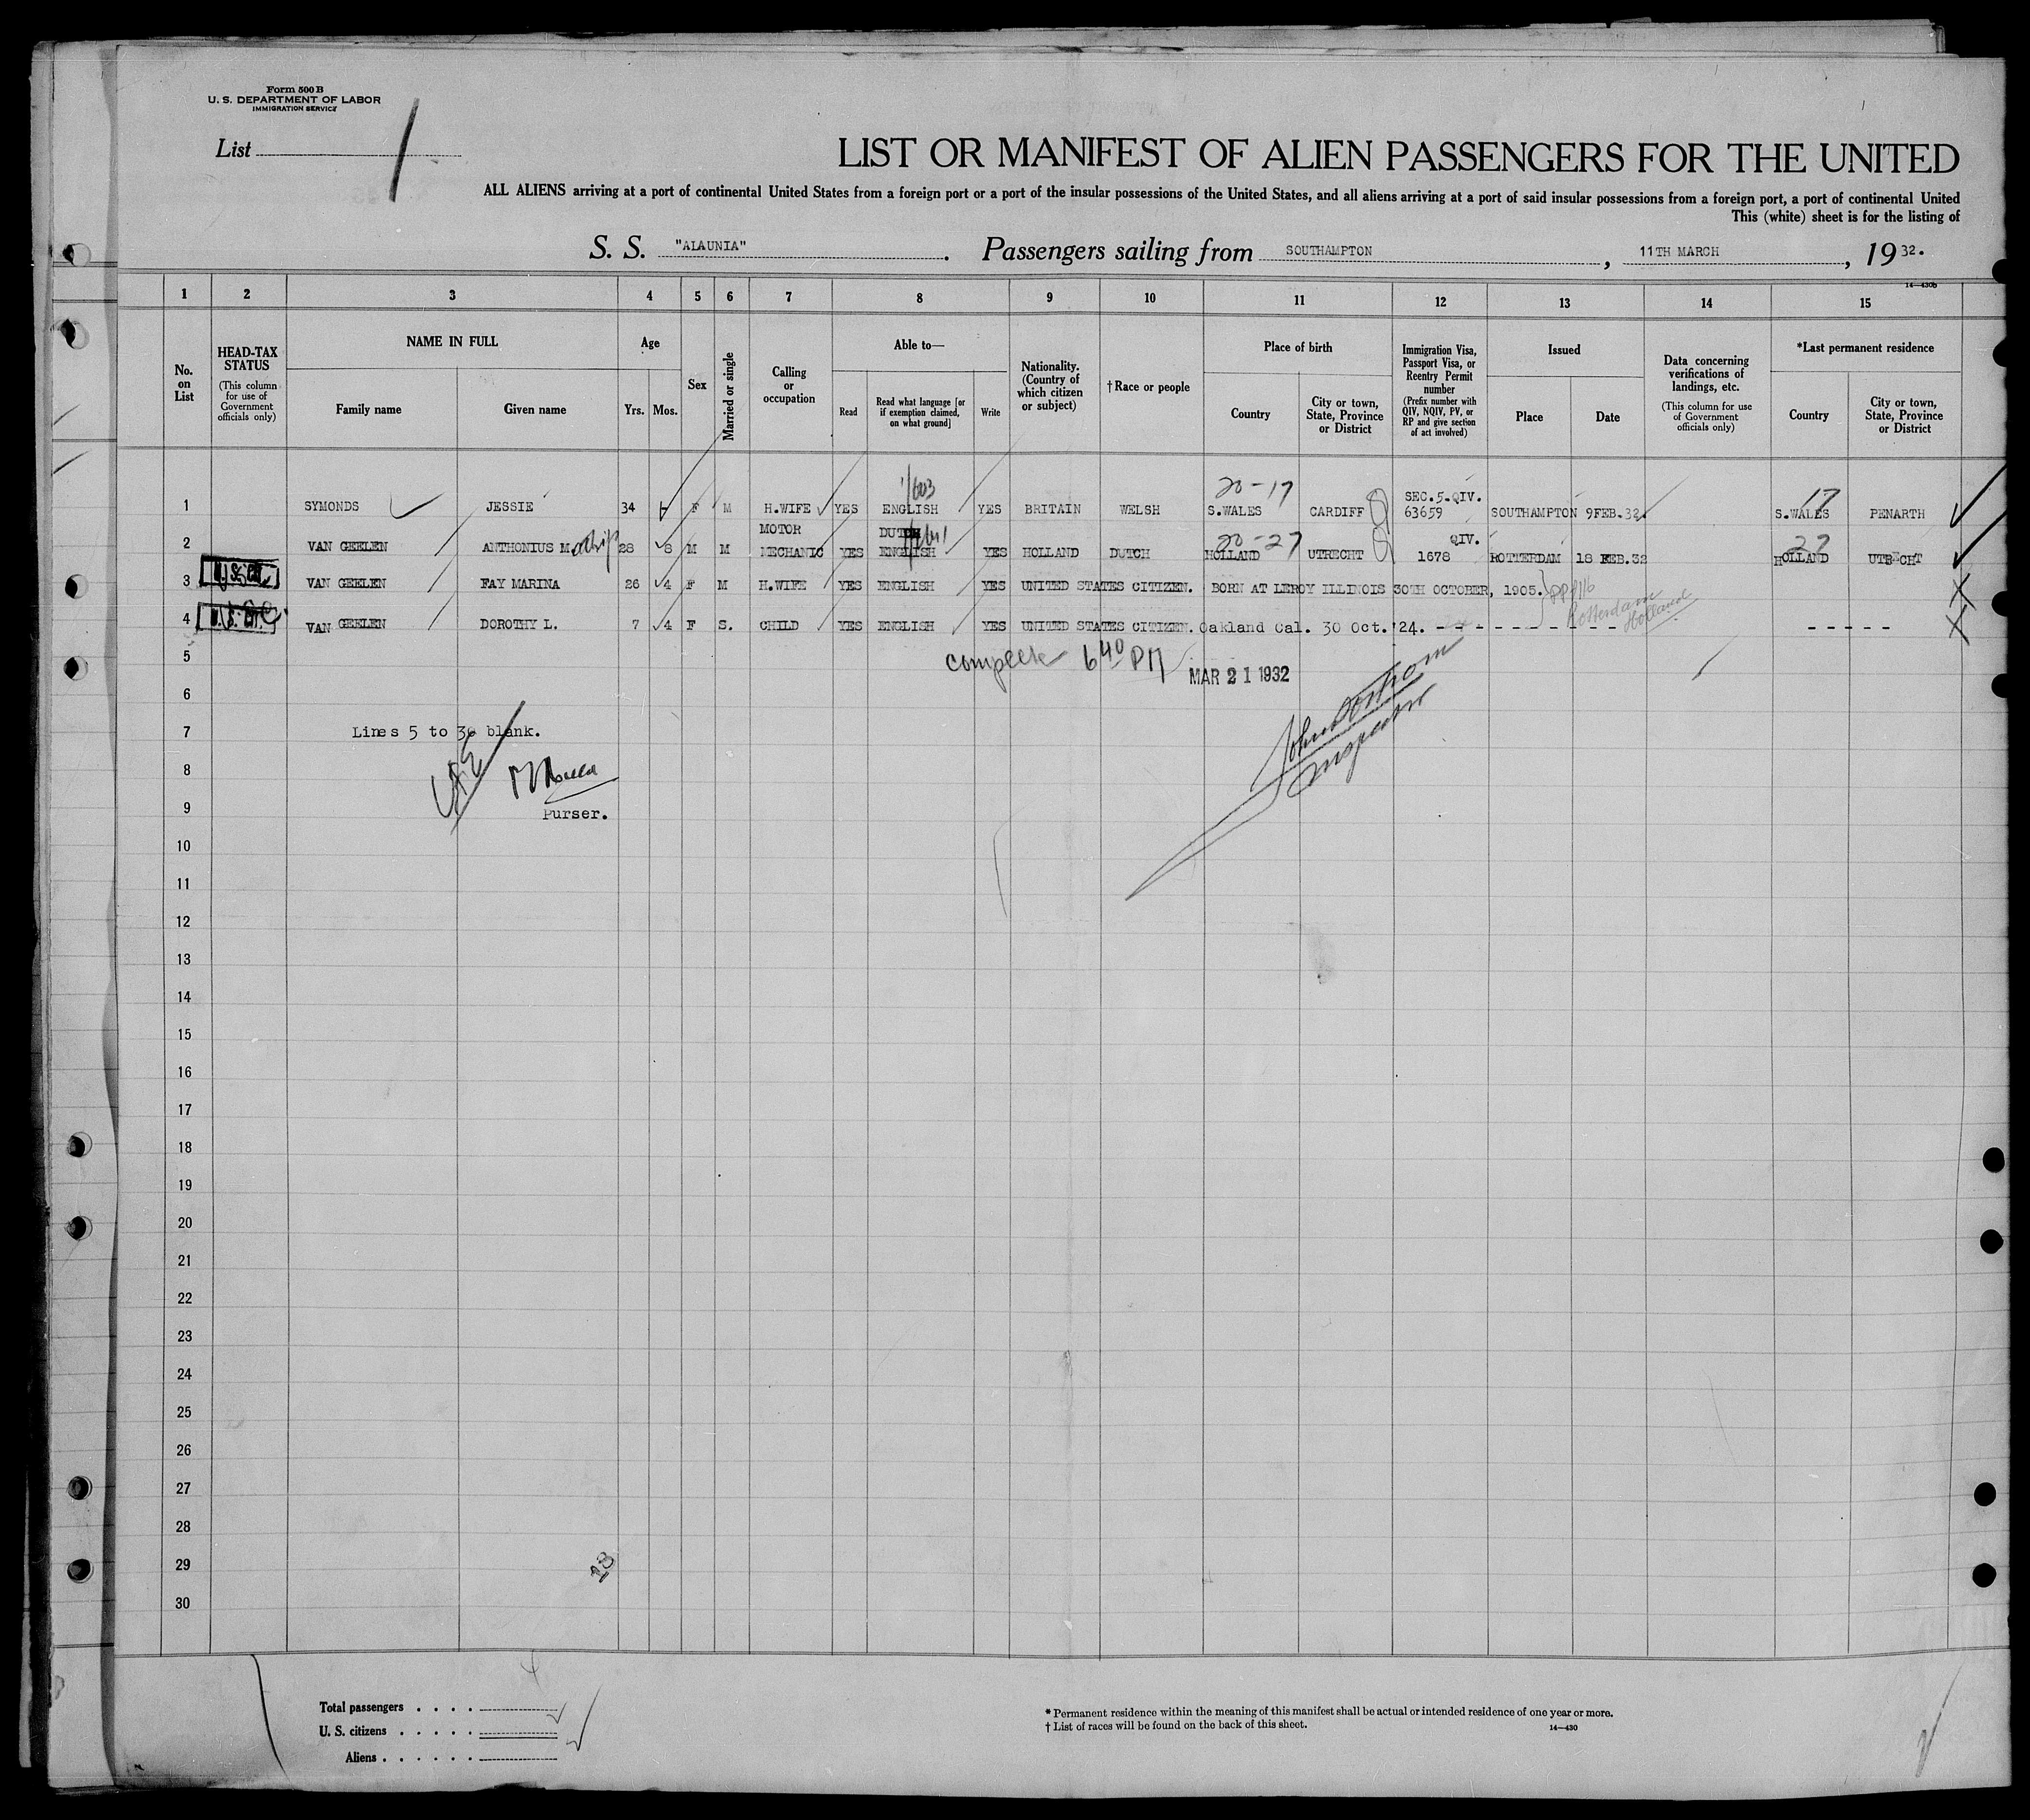 Form 500 B
U. S. DEPARTMENT OF LABOR
IMMIGRATION SERVICE
List 1
LIST OR MANIFEST OF ALIEN PASSENGERS FOR THE UNITED
ALL ALIENS arriving at a port of continental United States from a foreign port or a port of the insular possessions of the United States, and all aliens arriving at a port of said insular possessions from a foreign port, a port of continental United
This (white) sheet is for the listing of
S. S. "ALAUNIA". Passengers sailing from SOUTHAMPTON, 11TH MARCH, 1932.
14—430b
1 2 3 4 5 6 7 8 9 10 11 12 13 14 15
No. on List
HEAD-TAX STATUS (This column for use of Government officials only)
NAME IN FULL Family name Given name
Age Yrs. Mos.
Sex
Married or single
Calling or occupation
Able to— Read Read what language [or if exemption claimed, on what ground] Write
Nationality. (Country of which citizen or subject)
†Race or people
Place of birth Country City or town, State, Province or District
Immigration Visa, Passport Visa, or Reentry Permit number (Prefix number with QIV, NQIV, PV, or RP and give section of act involved)
Issued Place Date
Data concerning verifications of landings, etc. (This column for use of Government officials only)
*Last permanent residence Country City or town, State, Province or District
1/603 20-17 SEC.5.QIV. 17
1 SYMONDS JESSIE 34 F M H.WIFE YES ENGLISH YES BRITAIN WELSH S.WALES CARDIFF 63659 SOUTHAMPTON 9FEB.32. S.WALES PENARTH
MOTOR DUTCH 20-27 QIV. 27
2 VAN GEELEN ANTHONIUS M. 28 8 M M MECHANIC YES ENGLISH YES HOLLAND DUTCH HOLLAND UTRECHT 1678 ROTTERDAM 18 FEB.32 HOLLAND UTRECHT
3 VAN GEELEN FAY MARINA 26 4 F M H.WIFE YES ENGLISH YES UNITED STATES CITIZEN. BORN AT LEROY ILLINOIS 30TH OCTOBER, 1905.
Rotterdam
Holland
4 VAN GEELEN DOROTHY L. 7 4 F S. CHILD YES ENGLISH YES UNITED STATES CITIZEN. Oakland Cal. 30 Oct. '24. - - - - - - - - - - - - -
5 complete 6 40 PM MAR 21 1932
6
Inspector
7 Lines 5 to 30 blank.
8
9 Purser.
10
11
12
13
14
15
16
17
18
19
20
21
22
23
24
25
26
27
28
29
30
Total passengers . . . .
U. S. citizens . . . . .
Aliens . . . . . .
* Permanent residence within the meaning of this manifest shall be actual or intended residence of one year or more.
† List of races will be found on the back of this sheet. 14—430